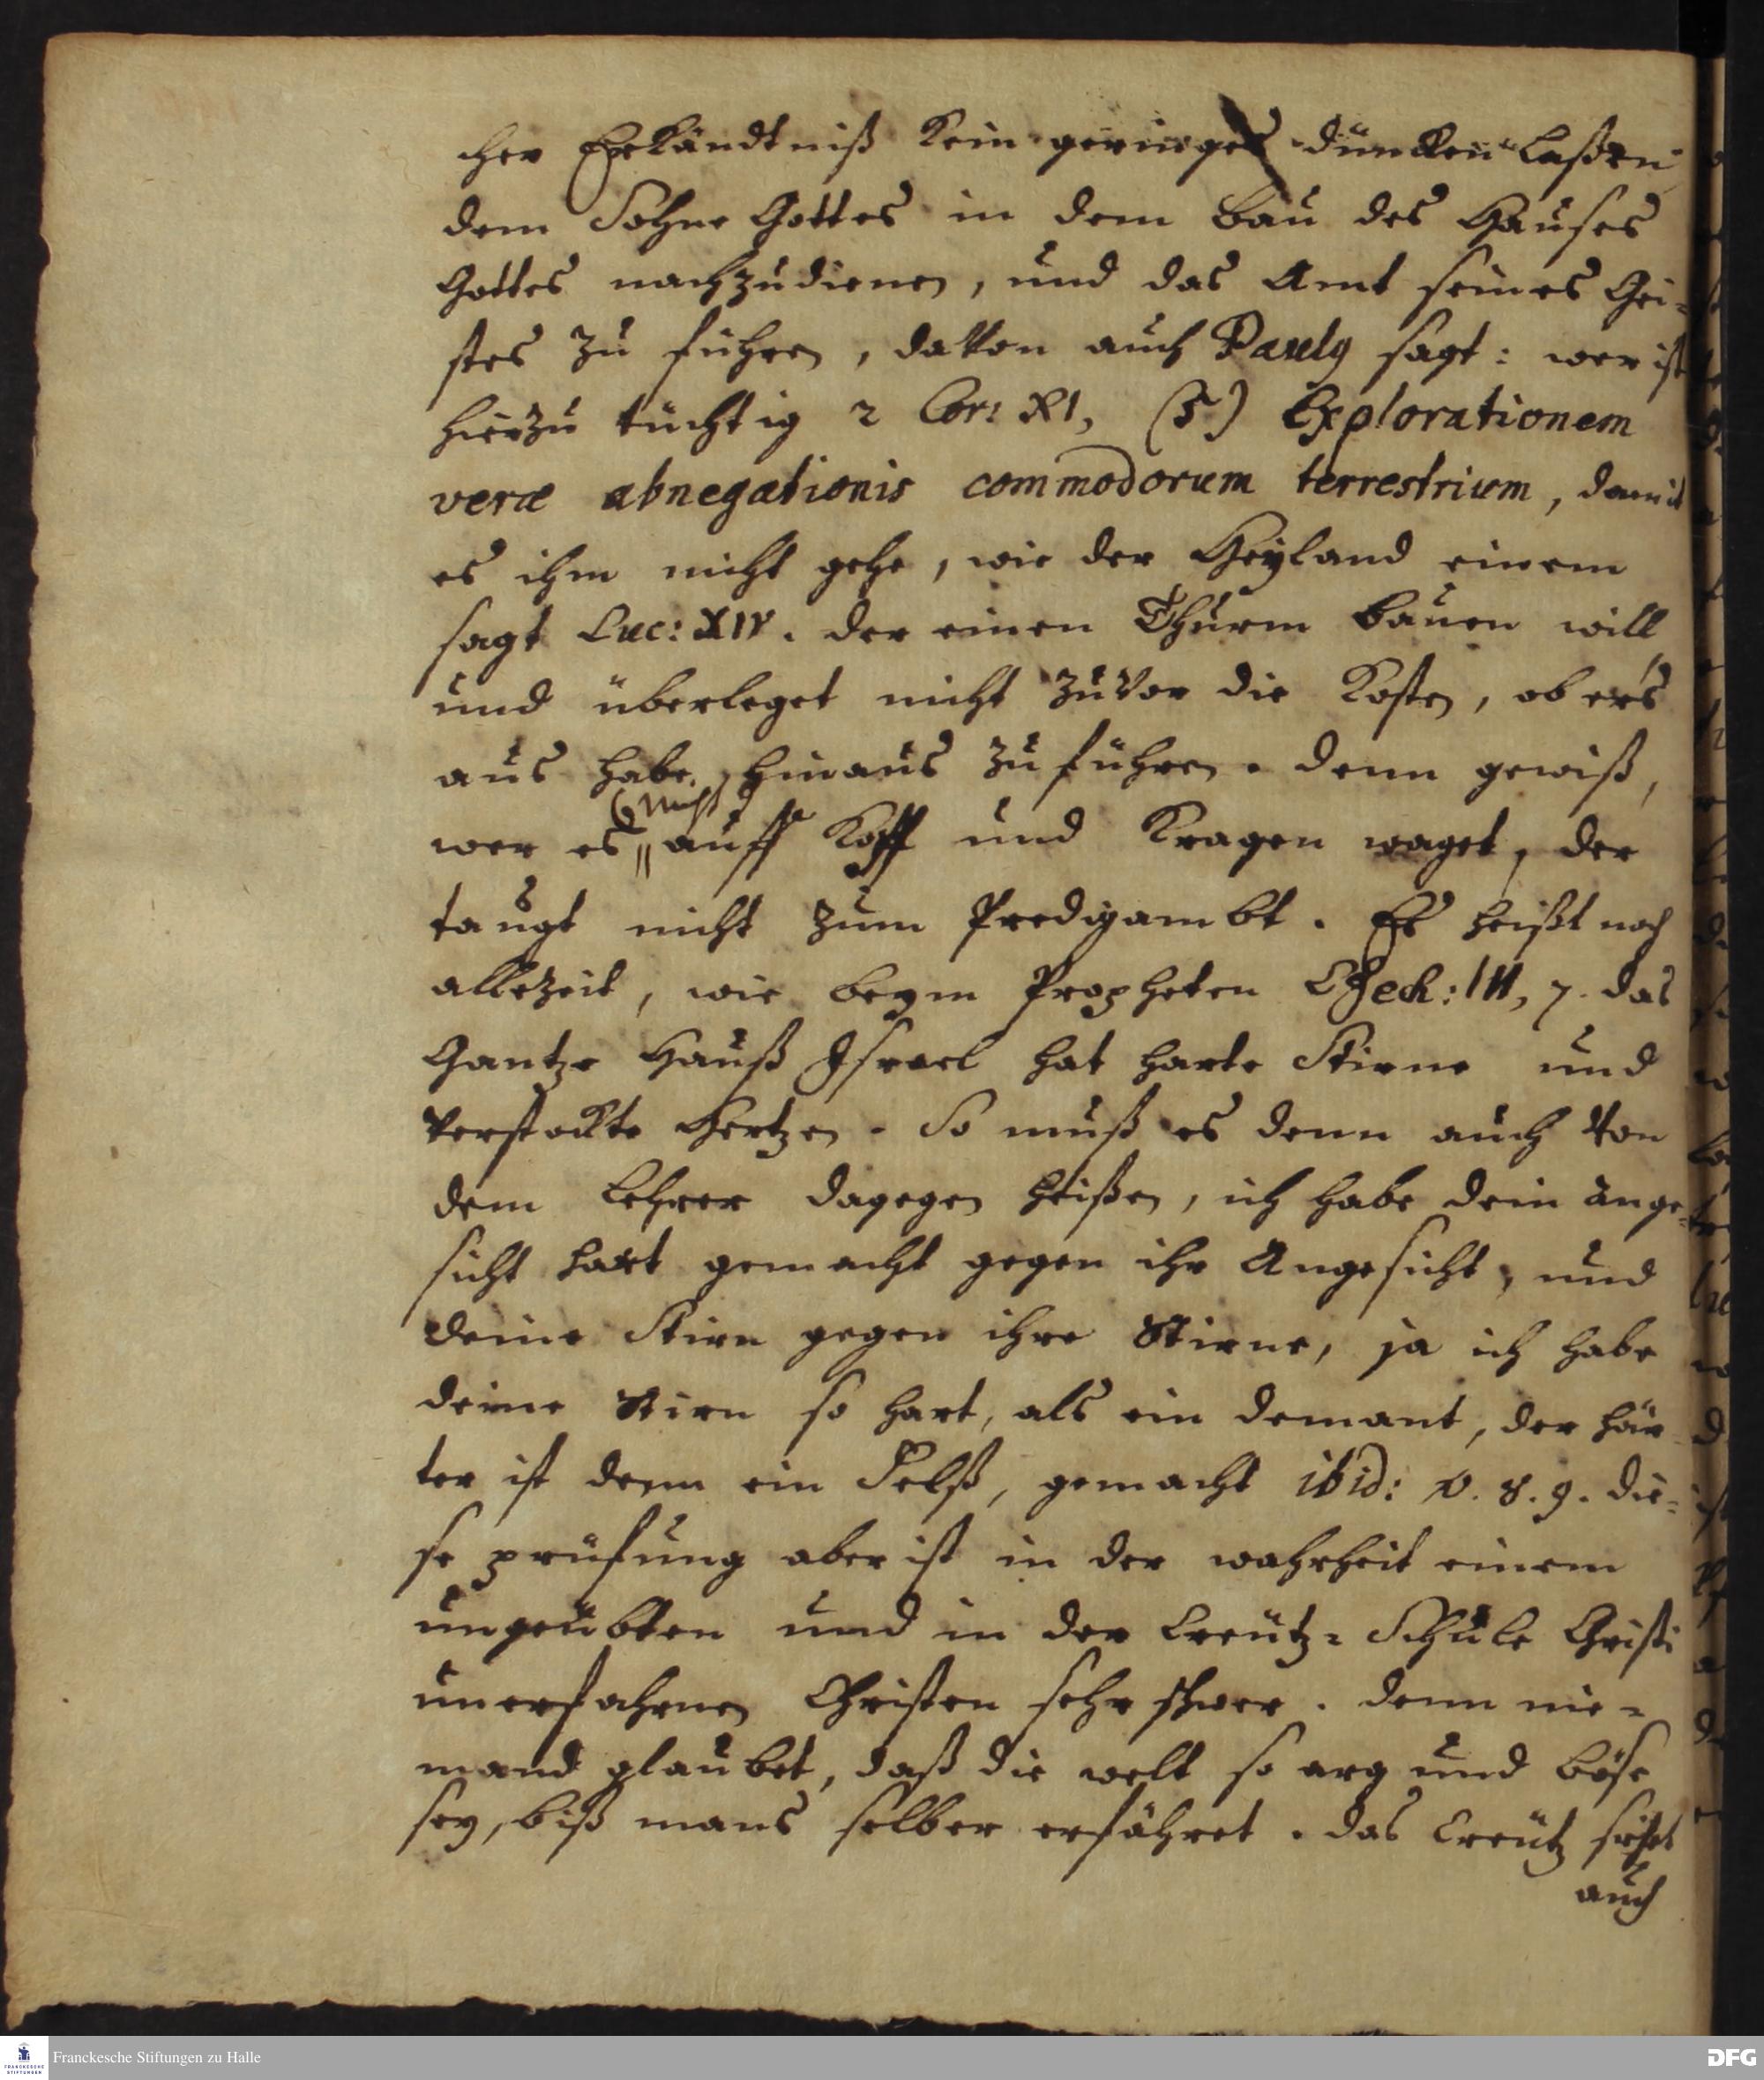 cher Erkändtniß kein geringes düncken laßen
dem Sohne Gottes in dem bau des Hauses
Gottes nachzudienen, und das Amt seines Gei-
stes zu führen, davon auch Paulus sagt: wer ist
hierzu tüchtig 2 Cor: XI, (5) Explorationem
veræ abnegationis commodorum terrestrium, damit
es ihm nicht gehe, wie der Heyland einem
sagt Luc: XIV. der einen Thurm bauen will
und überleget nicht zuvor die Kosten, ob er's
aus habe, hinaus zu führen. denn gewiß,
nicht
wer es auff Kopff und Kragen waget, der
taugt nicht zum Predigambt. Es heißt noch
allezeit, wie beym Propheten Ezech: III, 7. das
Gantze Hauß Israel hat harte Stirne und
verstockte Hertzen. So muß es denn auch von
dem Lehrer dagegen heißen, ich habe dein ange-
sicht hart gemacht gegen ihr Angesicht, und
deine Stirn gegen ihre Stirne, ja ich habe
deine Stirn so hart, als ein demant, der här
ter ist denn ein Felß, gemacht ibid: v. 8. 9. die-
se prüfung aber ist in der wahrheit einem
ungeübten und in der Creütz-Schule Christi
unerfahrnen Christen sehr schwer. denn nie-
mand glaubet, daß die welt so arg und böse
sey, biß mans selber erfähret. das Creütz sihet
auch
Franckesche Stiftungen zu Halle
DFG
FRANCKESCHE
STIFTUNGEN